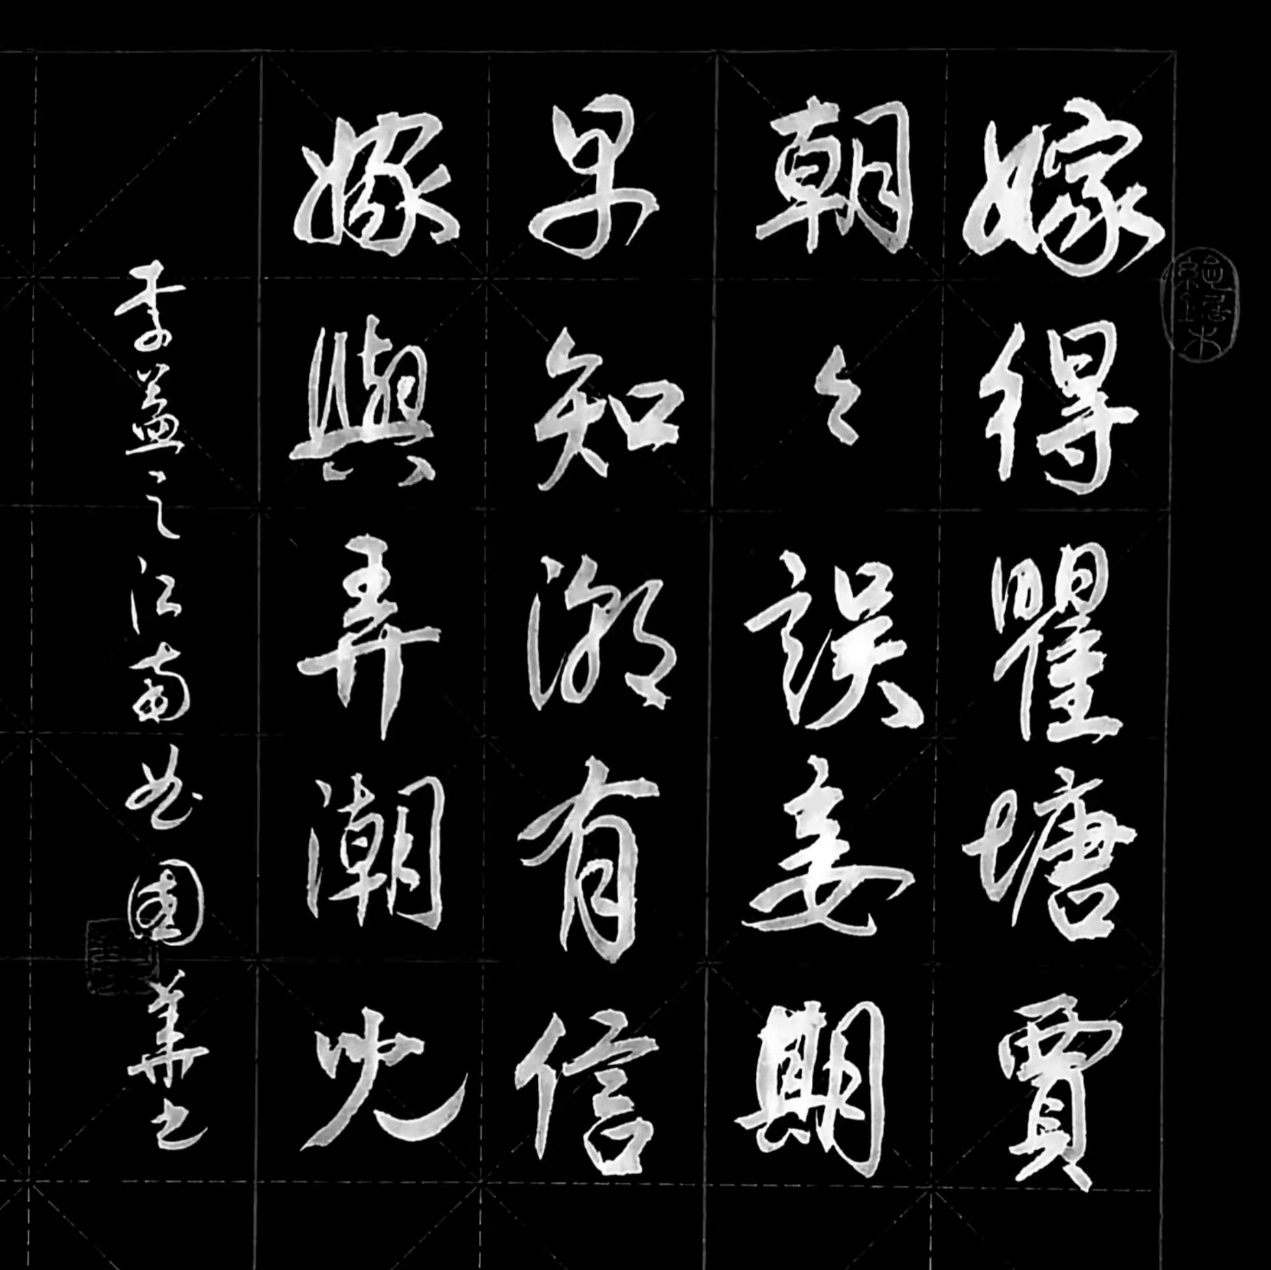 嫁得瞿塘賈
朝々誤妾期
早知潮有信
嫁與弄潮兒
李益之江南曲國華書